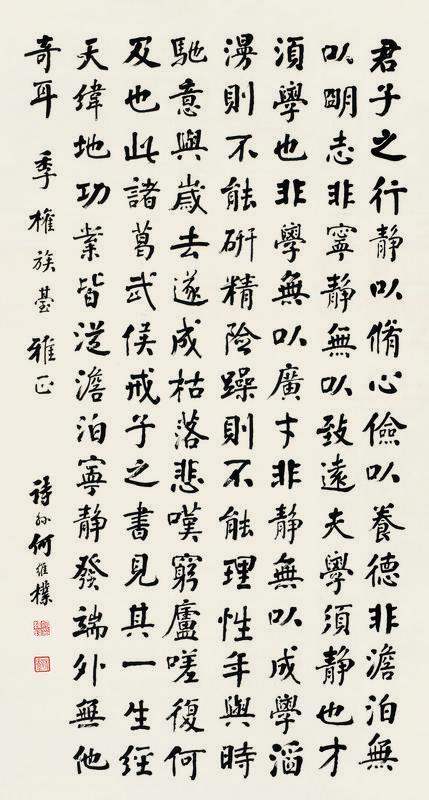 君子之行静以脩心儉以養德非澹泊無
以明志非寧静無以致遠夫學須静也才
須學也非學無以廣才非静無以成學滔
漫則不能研精險躁則不能理性年與時
馳意與歲去遂成枯落悲嘆窮廬嗟復何
及也此諸葛武侯戒子之書見其一生經
天緯地功業皆從澹泊寧静發端外無他
奇耳 季權族臺雅正 詩孫何維樸